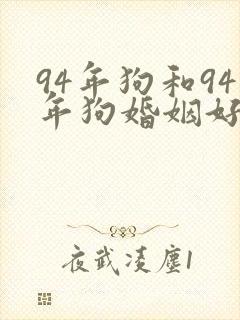 94年狗和94
年狗婚姻好
夜武凌塵1